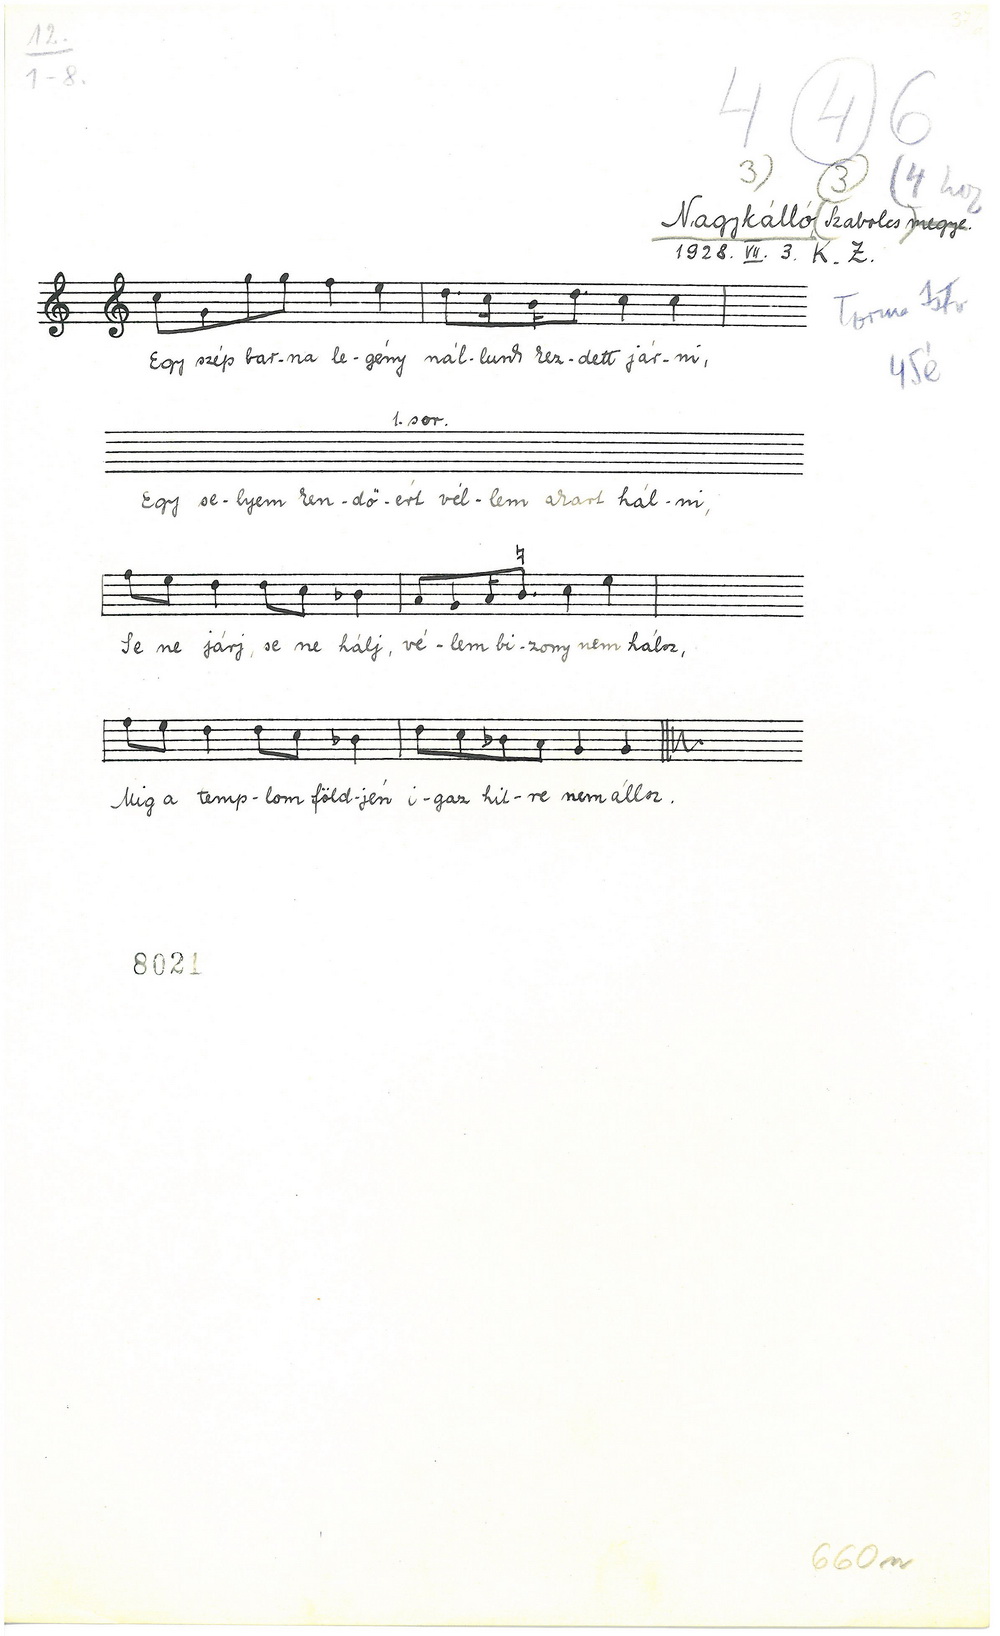 12.
1-8.
4 4 6
3) 3) (4
Nagykálló, (Szabolcs) megye.
1928. VII. 3. K. Z.
45é
Egy szép bar-na le-gény nál-lunk kez-dett jár-ni,
1. sor.
Egy se-lyem ken-dő-ért vél-lem akart hál-ni,
Se ne járj, se ne hálj, vé-lem bi-zony nem hálsz,
Mig a temp-lom föld-jén i-gaz hit-re nem állsz.
8021
660